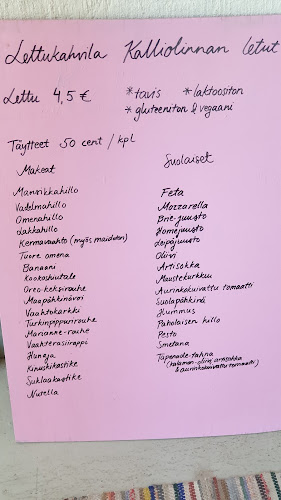 Lettukahvila Kalliolinnan letut
Lettu 4,5 € *tavis *laktoositon
*gluteeniton & vegaani
Täytteet 50 cent / kpl
Makeat
Mansikkahillo
Vadelmahillo
Omenahillo
Lakkahillo
Kermavaahto (myös maidoton)
Tuore omena
Banaani
Kookoshiutale
Oreo keksirouhe
Maapähkinävoi
Vaahtokarkki
Turkinpippurirouhe
Marianne-rouhe
Vaahterasiirappi
Hunaja
Kinuskikastike
Suklaakastike
Nutella
Suolaiset
Feta
Mozzarella
Brie-juusto
Homejuusto
Leipäjuusto
Oliivi
Artisokka
Maustekurkku
Aurinkokuivattu tomaatti
Suolapähkinä
Hummus
Paholaisen hillo
Pesto
Smetana
Tapenade-tahna
(kalamon-oliivi, artisokka
& aurinkokuivattu tomaatti)